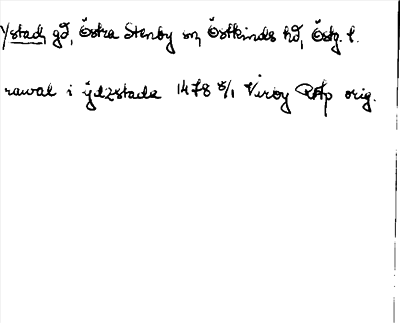 Ystad, gd, Östra Stenby sn, Östkinds hd, Östg. l.
rawal i ydzstada 1478 8/1 Viröy RAp orig.